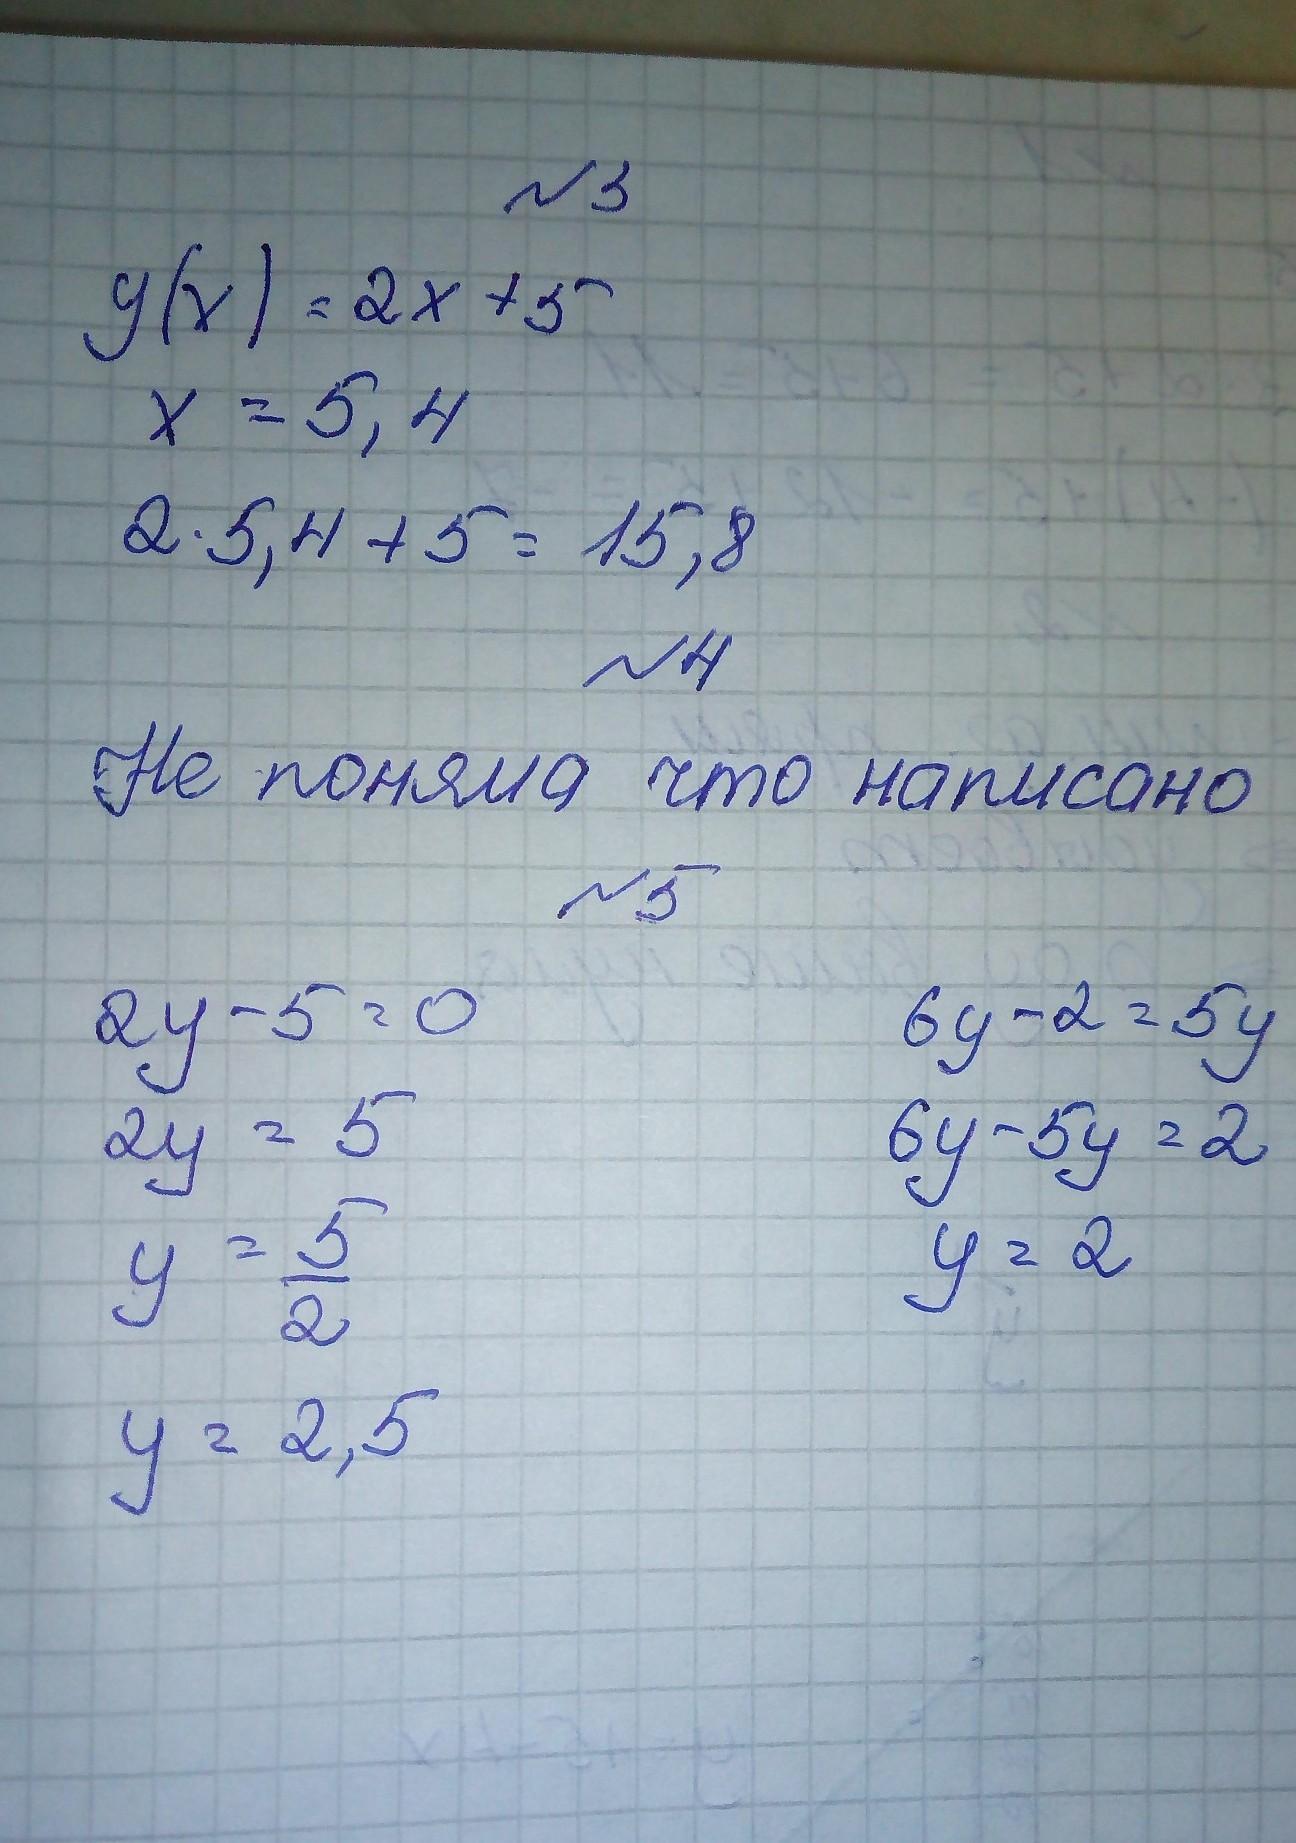 №3
y(x) = 2x + 5
x = 5,4
2·5,4 + 5 = 15,8
№4
Не поняла что написано
№5
2y - 5 = 0
2y = 5
y = 5/2
y = 2,5
6y - 2 = 5y
6y - 5y = 2
y = 2